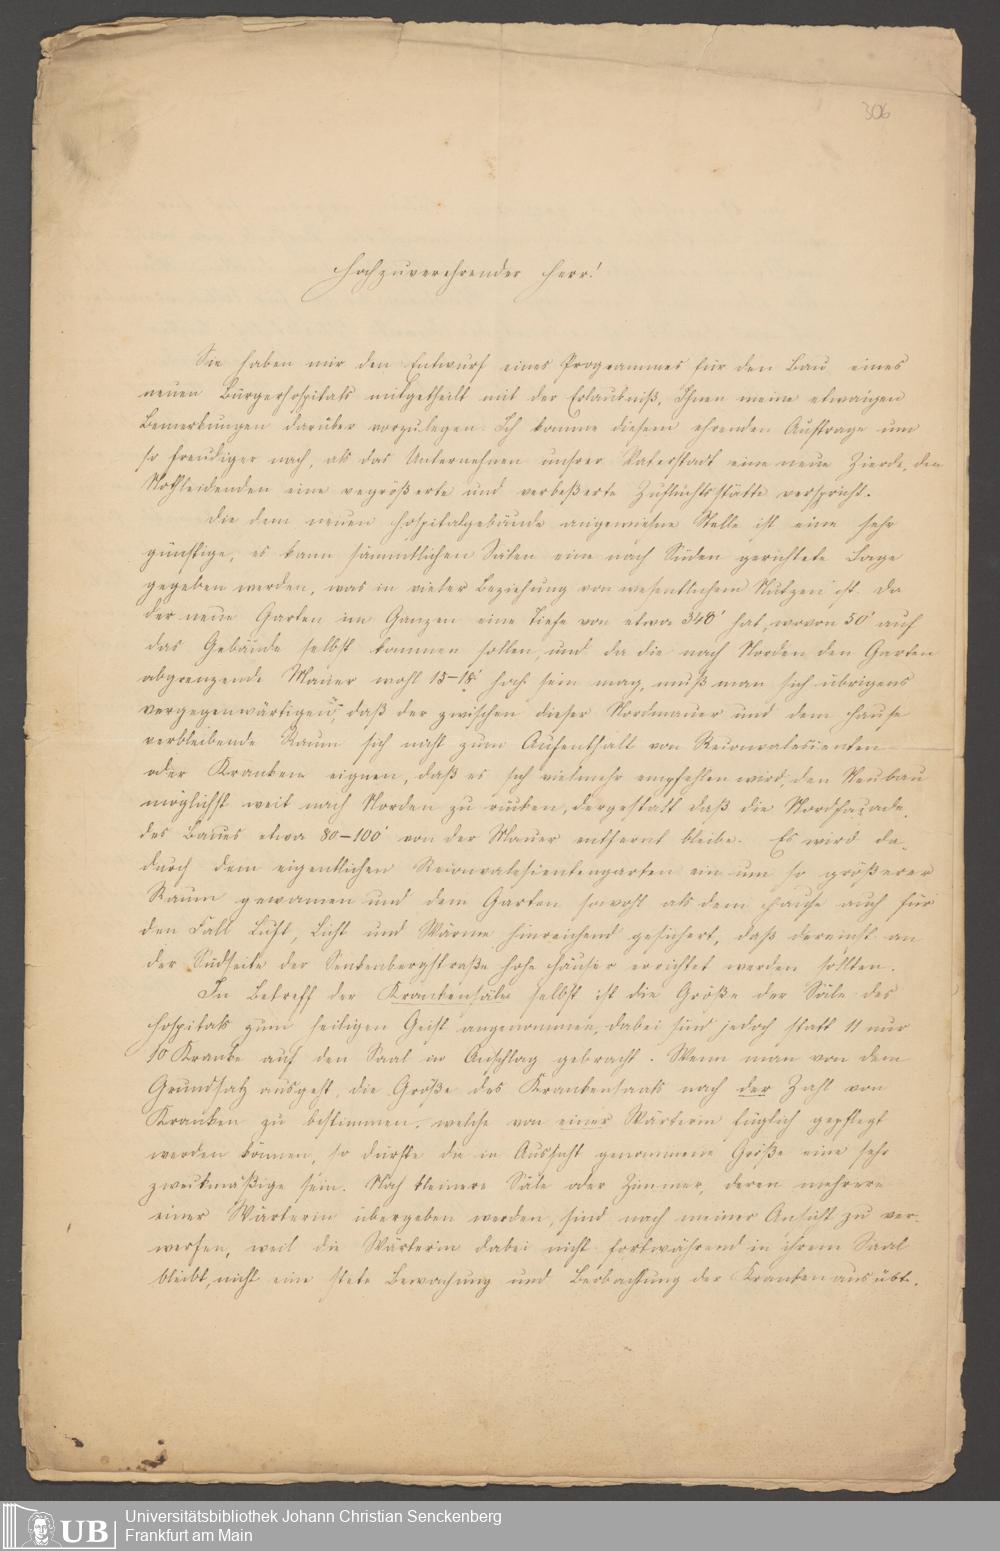 306
Hochzuverehrender Herr!
Sie haben mir den Entwurf eines Programmes für den Bau eines
neuen Bürgerhospitals mitgetheilt mit der Erlaubniß, Ihnen meine etwaigen
Bemerkungen darüber vorzulegen. Ich komme diesem ehrenden Auftrage um
so freudiger nach, als das Unternehmen unsrer Vaterstadt eine neue Zierde, den
Nothleidenden eine vegrößerte und verbeßerte Zufluchtsstätte verspricht.
Die dem neuen Hospitalgebäude angewiesne Stelle ist eine sehr
günstige, es kann sämmtlichen Sälen eine nach Süden gerichtete Lage
gegeben werden, was in vieler Beziehung von wesentlichem Nutzen ist. Da
der neue Garten im Ganzen eine Tiefe von etwa 348' hat, wovon 50' auf
das Gebäude selbst kommen sollen, und da die nach Norden den Garten
abgrenzende Mauer wohl 15–18' hoch sein mag, muß man sich übrigens
vergegenwärtigen, daß der zwischen dieser Nordmauer und dem Hause
verbleibende Raum sich nicht zum Aufenthalt von Reconvalescienten
oder Kranken eignen, daß es sich vielmehr empfehlen wird, den Neubau
möglichst weit nach Norden zu rücken, dergestalt daß die Nordfaçade
des Baues etwa 80–100' von der Mauer entfernt bleibe. Es wird da-
durch dem eigentlichen Reconvalescientengarten ein um so größerer
Raum gewonnen und dem Garten sowohl als dem Hause auch für
den Fall Luft, Licht und Wärme hinreichend gesichert, daß dereinst an
der Südseite der Senkenbergstraße hohe Häuser errichtet werden sollten.
In Betreff der Krankensäle selbst ist die Größe der Säle des
Hospitals zum heiligen Geist angenommen, dabei sind jedoch statt 11 nur
10 Kranke auf den Saal in Anschlag gebracht. Wenn man von dem
Grundsatz ausgeht, die Größe des Krankensaals nach der Zahl von
Kranken zu bestimmen, welche von einer Wärterin füglich gepflegt
werden können, so dürfte die in Aussicht genommene Größe eine sehr
zweckmäßige sein. Noch kleinere Säle oder Zimmer, deren mehrere
einer Wärterin übergeben werden, sind nach meiner Ansicht zu ver-
werfen, weil die Wärterin dabei nicht fortwährend in ihrem Saal
bleibt, nicht eine stete Bewachung und Beobachtung der Kranken ausübt.
UB
Universitätsbibliothek Johann Christian Senckenberg
Frankfurt am Main